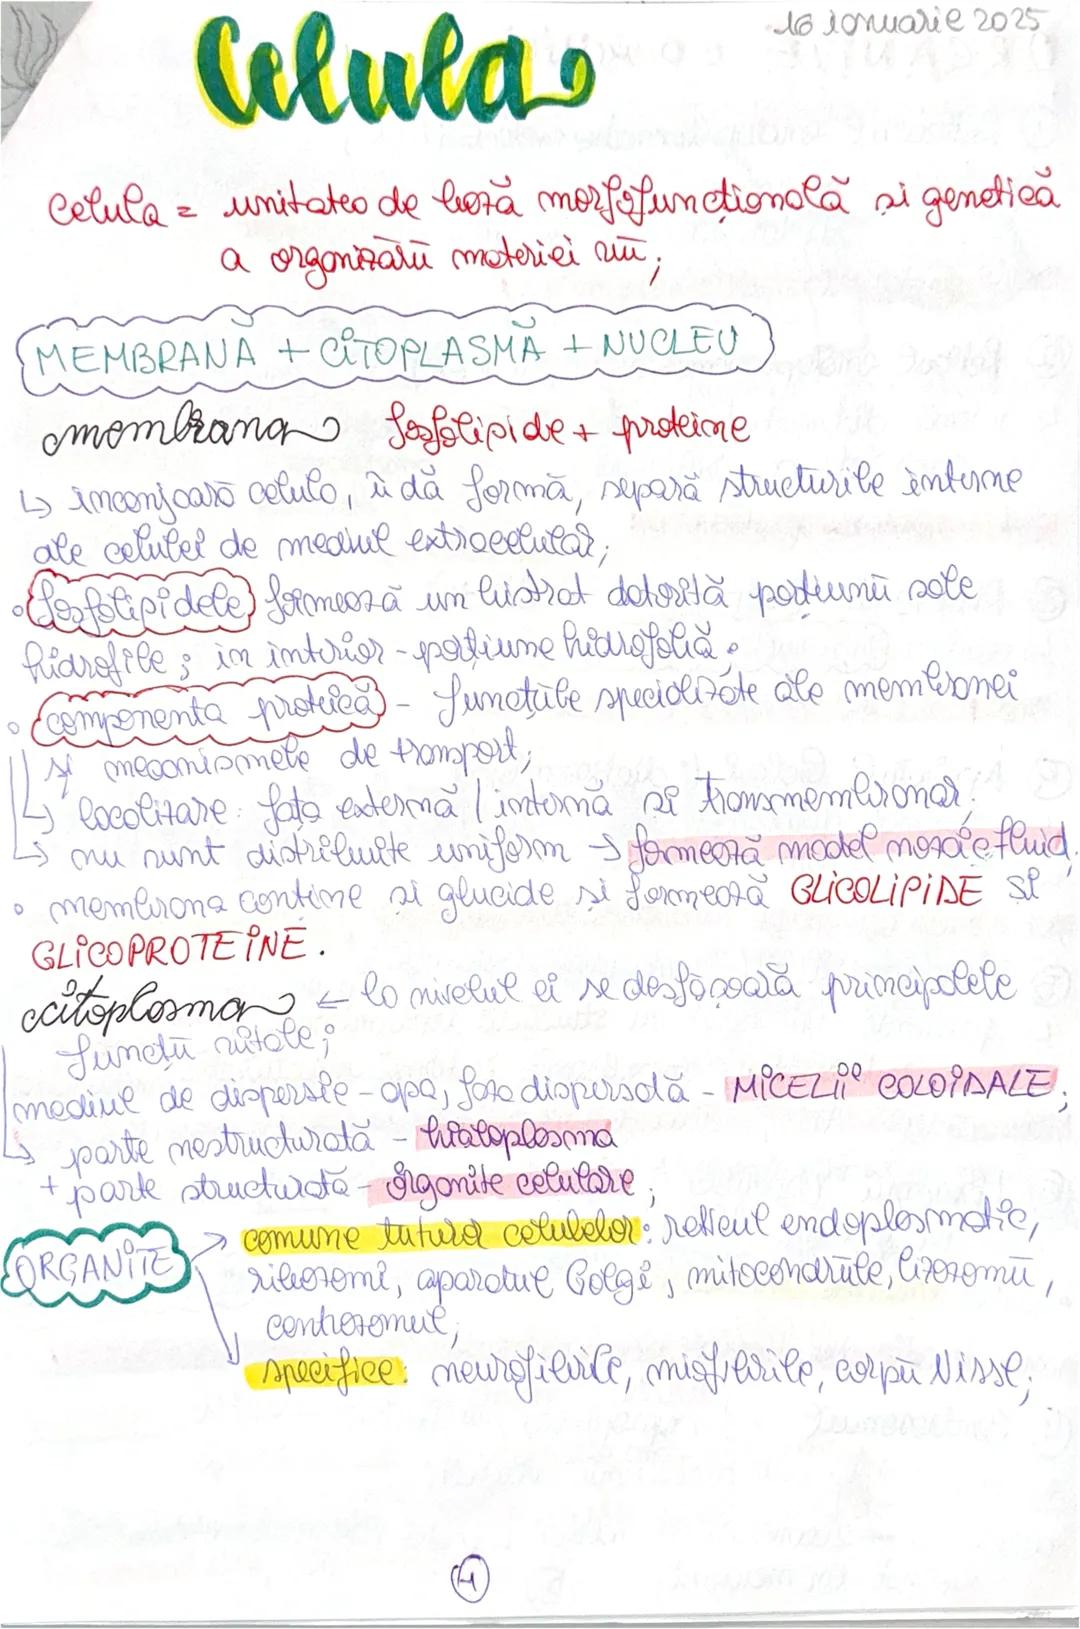 16 ianuarie 2025
Celula
Celula = unitatea de bază morfofuncțională și genetică
a organizării materiei vii;
MEMBRANĂ + CITOPLASMĂ + NUCLEU
membrana fosfolipide + proteine
↳ înconjoară celula, îi dă formă, separă structurile interne
ale celulei de mediul extracelular;
• fosfolipidele formează un bistrat datorită porțiunii sale
hidrofile; în interior - porțiune hidrofobă.
• componenta proteică - funcțiile specializate ale membranei
și mecanismele de transport;
↳ localizare: fața externă / internă și transmembranar.
↳ nu sunt distribuite uniform → formează model mozaic fluid.
• membrana conține și glucide și formează GLICOLIPIDE ȘI
GLICOPROTEINE.
citoplasma ← la nivelul ei se desfășoară principalele
funcții vitale;
mediul de dispersie - apa, faza dispersată - MICELII COLOIDALE;
↳ parte nestructurată - hialoplasma
+ parte structurată - organite celulare;
ORGANITE → comune tuturor celulelor: reticul endoplasmatic,
ribozomi, aparatul Golgi, mitocondriile, lizozomii,
centrozomul;
specifice: neurofibrile, miofibrile, corpii Nissl;
4